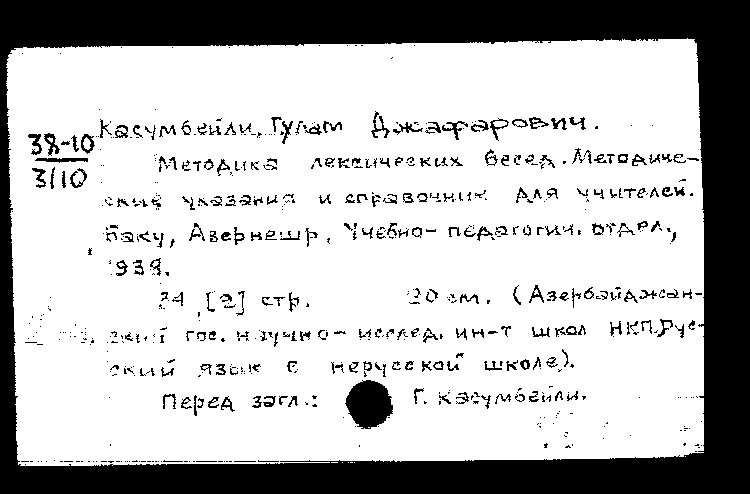 Касумбейли, Гулам Джафарович.
38-10
3110
Методика лексических бесед. Методиче-
ские указания и справочник для учителей.
Баку, Азернешр, Учебно-педагогич. отдел.,
1938.
34, [2] стр. 20 см. (Азербайджан-
ский гос. научно-исслед. ин-т школ НКП. Рус-
ский язык в нерусской школе).
Перед загл.: Г. Касумбейли.